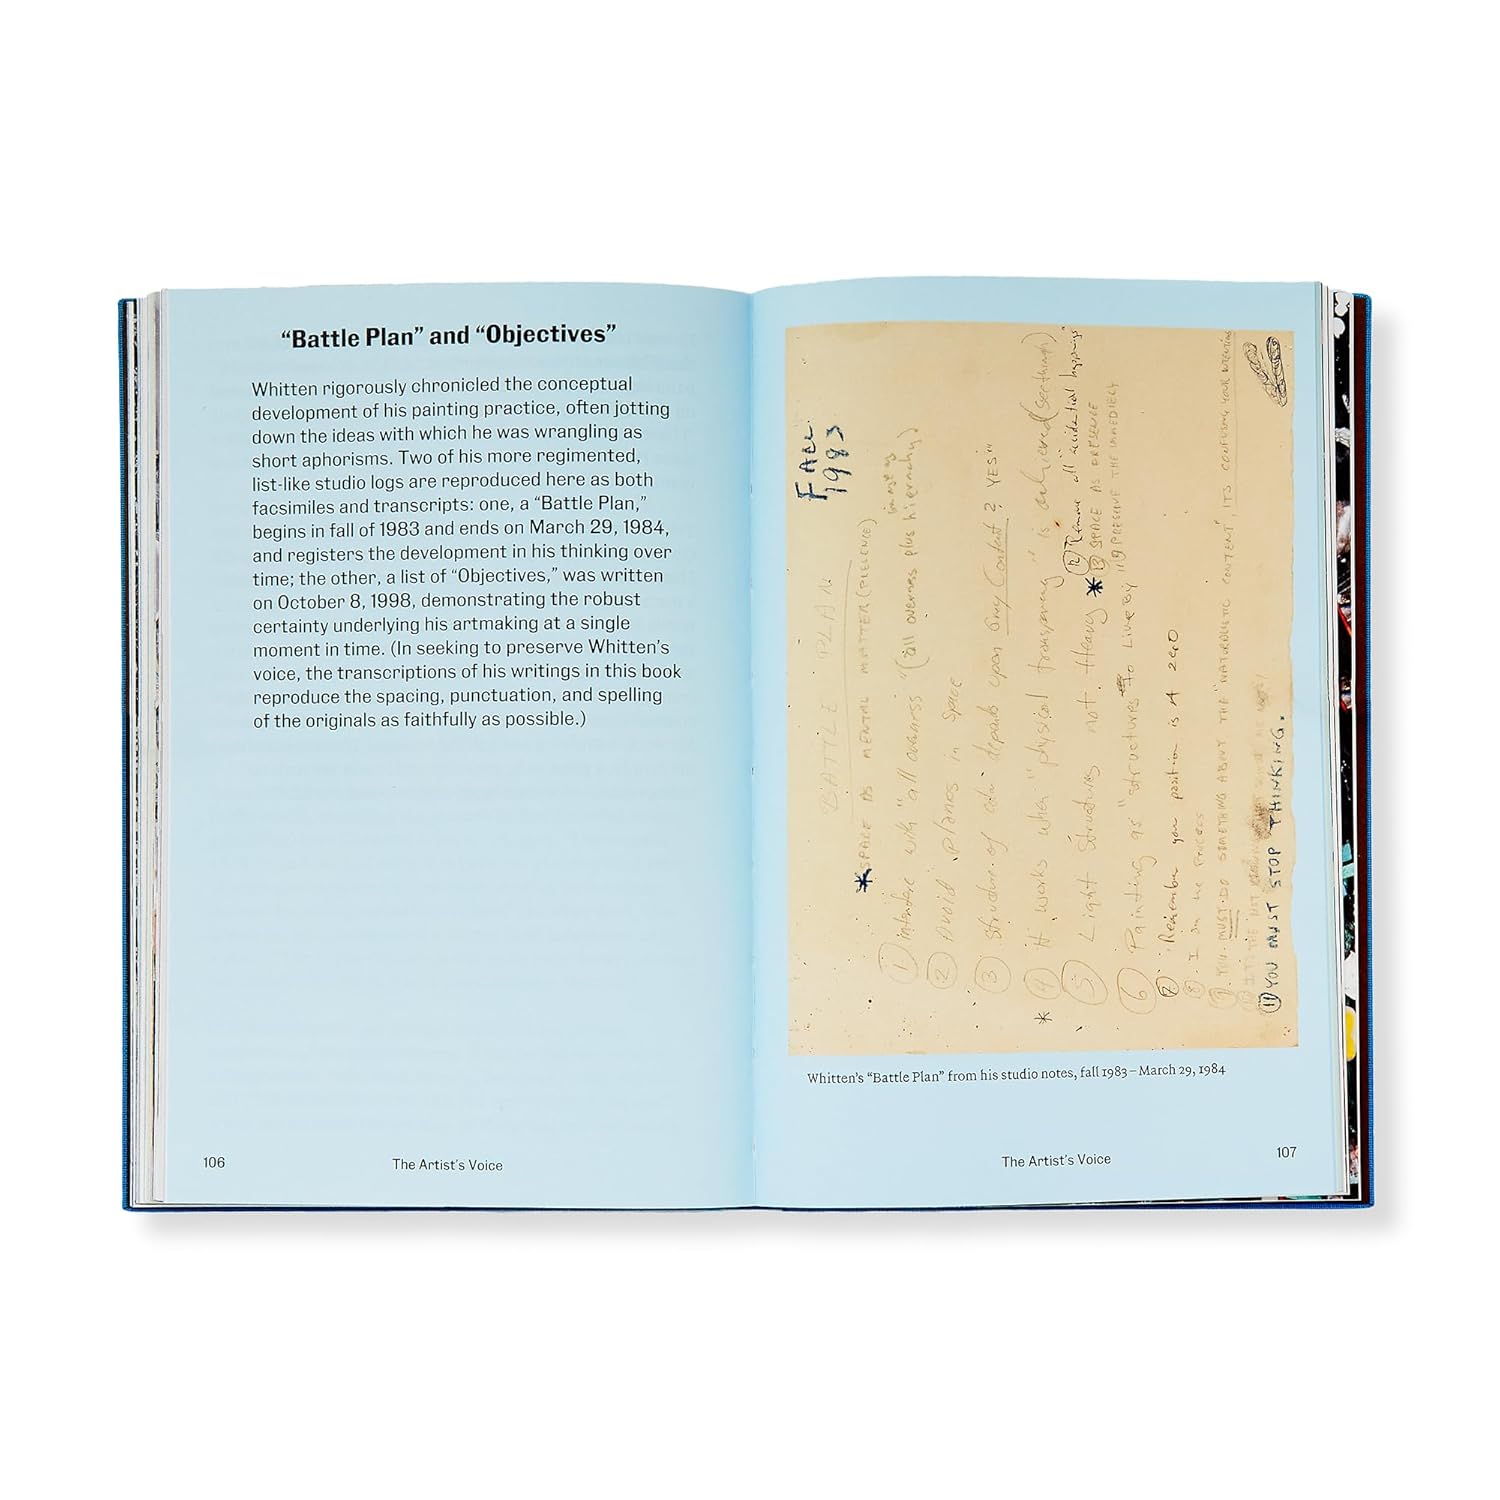 “Battle Plan” and “Objectives”
Whitten rigorously chronicled the conceptual
development of his painting practice, often jotting
down the ideas with which he was wrangling as
short aphorisms. Two of his more regimented,
list-like studio logs are reproduced here as both
facsimiles and transcripts: one, a “Battle Plan,”
begins in fall of 1983 and ends on March 29, 1984,
and registers the development in his thinking over
time; the other, a list of “Objectives,” was written
on October 8, 1998, demonstrating the robust
certainty underlying his artmaking at a single
moment in time. (In seeking to preserve Whitten’s
voice, the transcriptions of his writings in this book
reproduce the spacing, punctuation, and spelling
of the originals as faithfully as possible.)
106
The Artist’s Voice
FALL
1983
BATTLE PLAN
*SPACE IS MENTAL MATTER (
① interfere with "all overness" (all overness plus hierarchy)
② Avoid planes in space
③ Structure of color depends upon Gray Content? YES"
* ④ it works when "physical transparency" is achieved (seethrough)
⑤ Light Structures not Heavy
⑫ Remove all "accidental happenings"
* ⑬ SPACE AS PRESENCE
⑥ Painting as "structures to Live By"
PRESERVE THE
⑦ Remember your position is A zero
⑧ I am the process
⑨ YOU MUST DO SOMETHING ABOUT THE "NATURALISTIC CONTENT", ITS CONFUSING YOUR INTENTIONS
IT'S THE NOT
⑪ YOU MUST STOP THINKING.
Whitten’s “Battle Plan” from his studio notes, fall 1983 – March 29, 1984
The Artist’s Voice
107